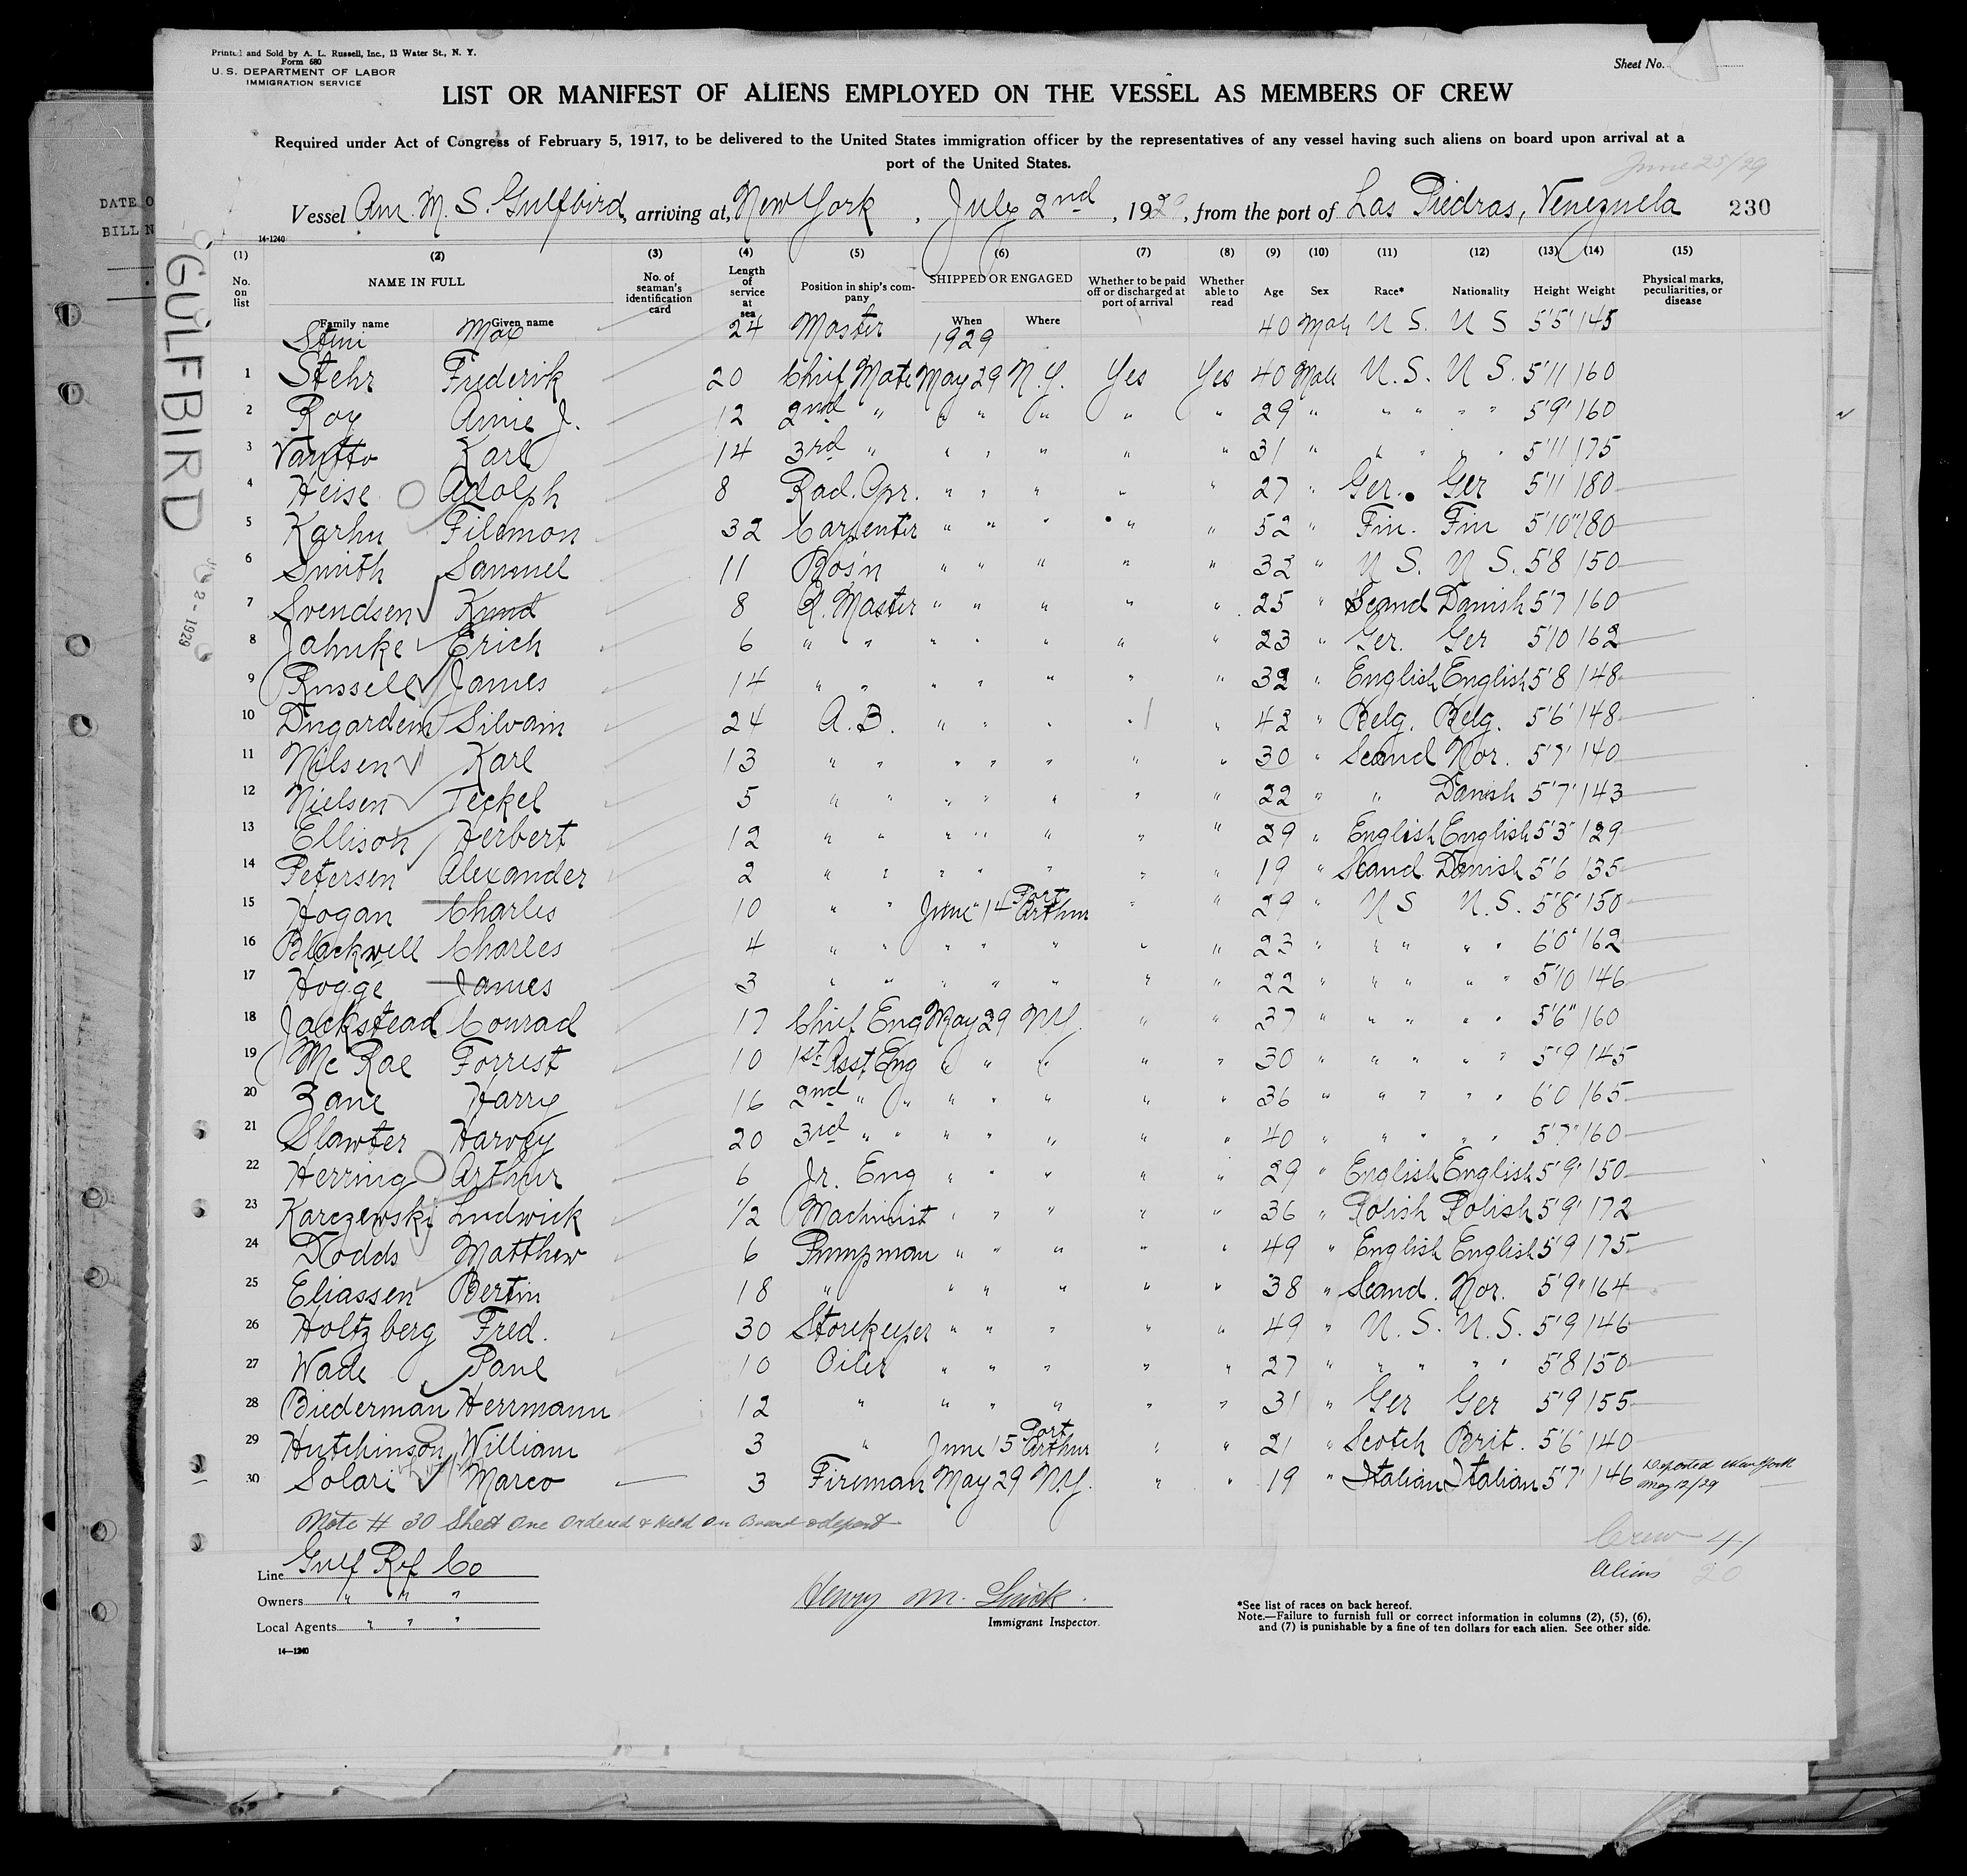 Printed and Sold by A. L. Russell, Inc., 13 Water St., N. Y.
Form 680
U. S. DEPARTMENT OF LABOR
IMMIGRATION SERVICE
Sheet No.
LIST OR MANIFEST OF ALIENS EMPLOYED ON THE VESSEL AS MEMBERS OF CREW
Required under Act of Congress of February 5, 1917, to be delivered to the United States immigration officer by the representatives of any vessel having such aliens on board upon arrival at a
port of the United States.
June 25/29
Vessel Am. M. S. Gulfbird, arriving at, New York, July 2nd, 1929, from the port of Las Piedras, Venezuela 230
14-1240
(1) (2) (3) (4) (5) (6) (7) (8) (9) (10) (11) (12) (13) (14) (15)
No. on list NAME IN FULL No. of seaman's identification card Length of service at sea Position in ship's company SHIPPED OR ENGAGED Whether to be paid off or discharged at port of arrival Whether able to read Age Sex Race* Nationality Height Weight Physical marks, peculiarities, or disease
Family name Given name When Where
Max 24 Master 1929 40 Male U S. U S 5'5' 145
1 Stehr Frederik 20 Chief Mate May 29 N.Y. Yes Yes 40 Male U.S. U S. 5'11 160
2 Roy Amie J. 12 2nd " " " " " " 29 " " " " " 5'9' 160
3 Karl 14 3rd " " " " " " 31 " " " " " 5'11 175
4 Heise Adolph 8 Rad. Opr. " " " " " 27 " Ger. Ger 5'11 180
5 Karhu Filemon 32 Carpenter " " " " " 52 " Fin. Fin 5'10" 180
6 Smith Samuel 11 Bos'n " " " " " 32 " U S. U S. 5'8 150
7 Svendsen Knud 8 Q. Master " " " " " 25 " Scand Danish 5'7 160
8 Jahnke Erich 6 " " " " " " " 23 " Ger. Ger 5'10 162
9 Russell James 14 " " " " " " " 32 " English English 5'8 148
10 Dugardem Silvain 24 A. B. " " " " " 42 " Belg. Belg. 5'6' 148
11 Nilsen Karl 13 " " " " " " " 30 " Scand Nor. 5'7' 140
12 Nielsen Teckel 5 " " " " " " " 22 " " Danish 5'7' 143
13 Ellison Herbert 12 " " " " " " " 29 " English English 5'3" 129
14 Petersen Alexander 2 " " " " " " " 19 " Scand Danish 5'6 135
15 Hogan Charles 10 " " June 14 Port Arthur " " 29 " U S U.S. 5'8" 150
16 Blackwell Charles 4 " " " " " " " 23 " " " " " 6'0" 162
17 Hogge James 3 " " " " " " " 22 " " " " " 5'10 146
18 Jackstead Conrad 17 Chief Eng May 29 N.Y. " " 37 " " " " " 5'6" 160
19 Mc Rae Forrest 10 1st Asst Eng " " " " " 30 " " " " " 5'9 145
20 Zane Harry 16 2nd " " " " " " " 36 " " " " " 6'0 165
21 Slawter Harvey 20 3rd " " " " " " " 40 " " " " " 5'7" 160
22 Herring Arthur 6 Jr. Eng " " " " " 29 " English English 5'9" 150
23 Karczewski Ludwick 1/2 Machinist " " " " " 36 " Polish Polish 5'9' 172
24 Dodds Matthew 6 Pumpman " " " " " 49 " English English 5'9 175
25 Eliassen Bertin 18 " " " " " " 38 " Scand. Nor. 5'9" 164
26 Holtzberg Fred. 30 Storekeeper " " " " " 49 " U. S. U.S. 5'9 146
27 Wade Paul 10 Oiler " " " " " 27 " " " " " 5'8 150
28 Biederman Herrmann 12 " " " " " " 31 " Ger Ger 5'9 155
29 Hutchinson William 3 " June 15 Port Arthur " " 21 " Scotch Brit. 5'6' 140
30 Solari Marco 3 Fireman May 29 N.Y. " " 19 " Italian Italian 5'7' 146 Deported New York May 12/29
Note # 30 Sheet One Ordered & Held On Board & deport
Crew 41
Aliens 20
Line Gulf Ref Co
Owners " " "
Local Agents " " "
Henry M.
Immigrant Inspector.
*See list of races on back hereof.
Note.—Failure to furnish full or correct information in columns (2), (5), (6),
and (7) is punishable by a fine of ten dollars for each alien. See other side.
14—1240
GULFBIRD
2 - 1929
DATE O
BILL N